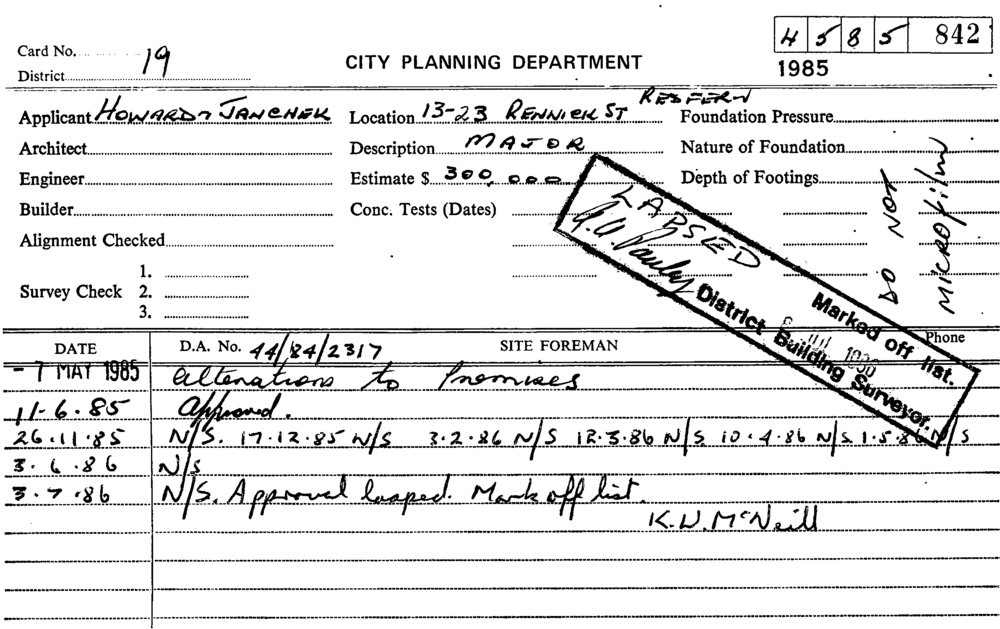 4 5 8 5 842
Card No. 19
1985
CITY PLANNING DEPARTMENT
District
Applicant HOWARD & JANCHEK Location 13-23 RENNICK ST REDFERN Foundation Pressure
Architect Description MAJOR Nature of Foundation
Engineer Estimate $ 300,000 Depth of Footings
Builder Conc. Tests (Dates)
Alignment Checked
1.
Survey Check 2.
3.
DO NOT
MICROFILM
LAPSED
Marked off list.
District Building Surveyor.
DATE D.A. No. 44/84/2317 SITE FOREMAN Phone
- 7 MAY 1985 Alterations to Premises
11-6.85 Approved.
26.11.85 N/S. 17.12.85 N/S 3.2.86 N/S 12.3.86 N/S 10.4.86 N/S. 1.5.86 N/S
3.6.86 N/S
3.7.86 N/S. Approval lasped. Mark off list.
K.W. McNeill